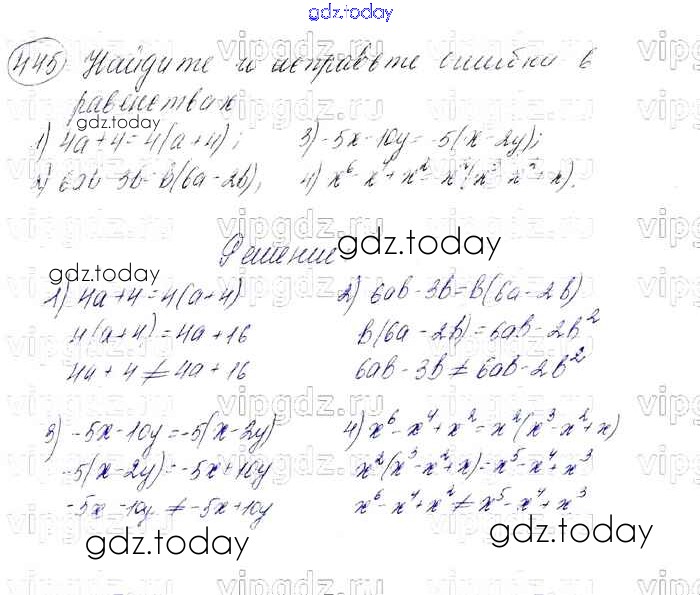 gdz.today
445 Найдите и исправьте ошибки в
равенствах
gdz.today
1) 4a+4=4(a+4); 3) -5x-10y=-5(x-2y);
2) 6ab-3b=b(6a-2b), 4) x⁶-x⁴+x²=x²(x³-x²+x).
Решение
gdz.today
gdz.today
1) 4a+4=4(a+4)
4(a+4)=4a+16
4a+4≠4a+16
2) 6ab-3b=b(6a-2b)
b(6a-2b)=6ab-2b²
6ab-3b≠6ab-2b²
3) -5x-10y=-5(x-2y)
-5(x-2y)=-5x+10y
-5x-10y≠-5x+10y
4) x⁶-x⁴+x²=x²(x³-x²+x)
x²(x³-x²+x)=x⁵-x⁴+x³
x⁶-x⁴+x²≠x⁵-x⁴+x³
gdz.today
gdz.today